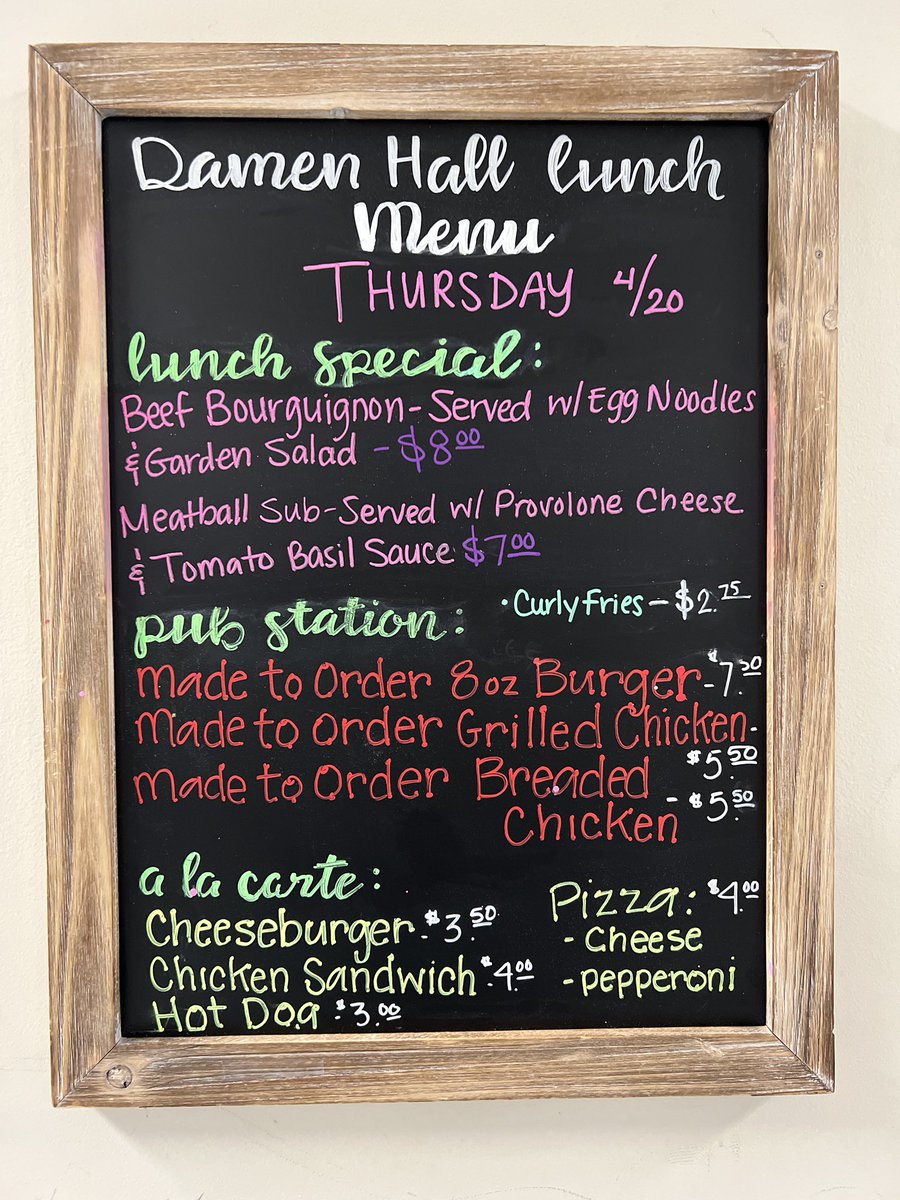 Damen Hall lunch
Menu
THURSDAY 4/20
lunch special:
Beef Bourguignon - Served w/ Egg Noodles
& Garden Salad - $8.00
Meatball Sub - Served w/ Provolone Cheese
& Tomato Basil Sauce $7.00
• Curly Fries - $2.75
pub station:
Made to Order 8oz Burger - $7.50
Made to Order Grilled Chicken -
$5.50
Made to Order Breaded
Chicken - $5.50
a la carte:
Cheeseburger - $3.50
Chicken Sandwich - $4.00
Hot Dog - $3.00
Pizza: $4.00
- Cheese
- pepperoni